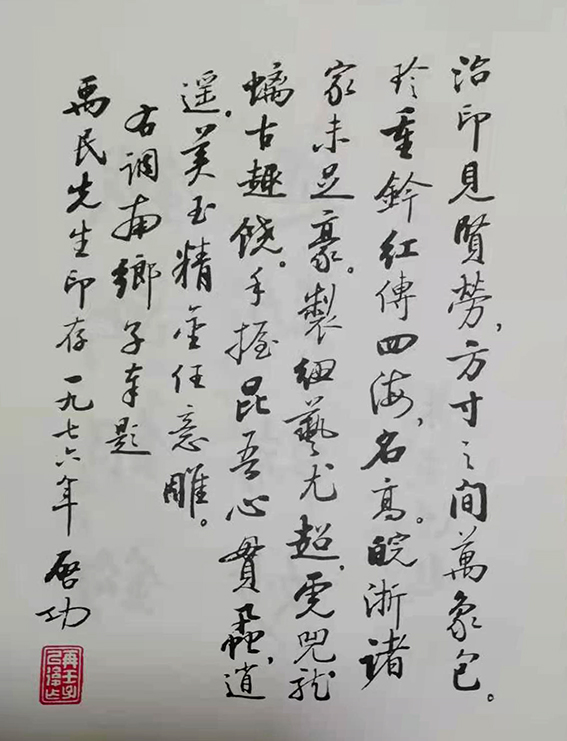 治印見賢勞，方寸之間萬象包。
珍重鈐紅傳四海，名高。皖浙諸
家未足豪。製紐藝尤超，虎兕龍
螭古趣饒。手握昆吾心貫蝨，逍
遥。美玉精金任意雕。
右調南鄉子奉題
禹民先生印存一九七六年 启功